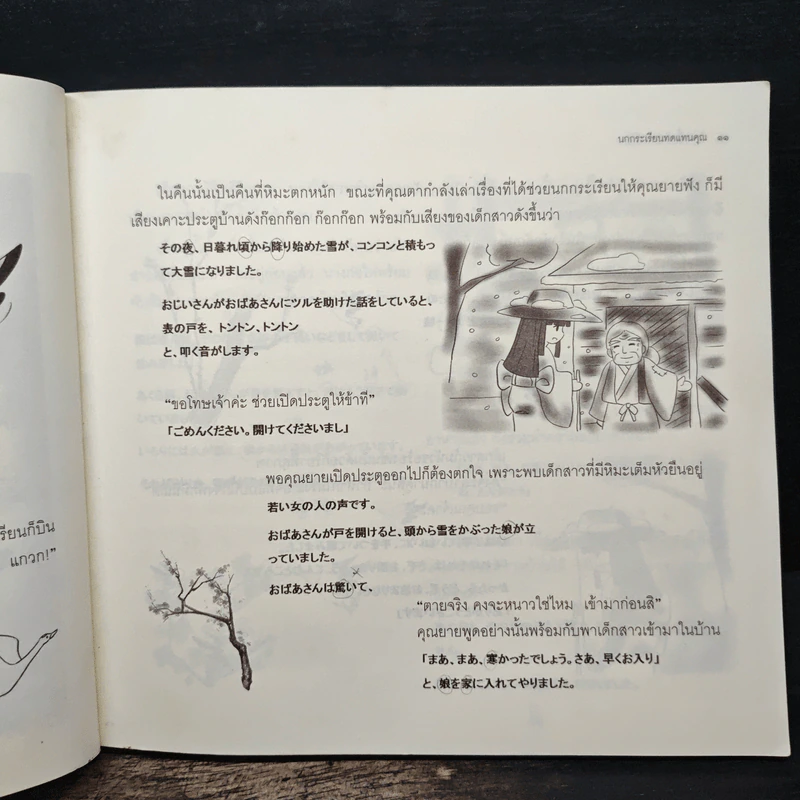 นกกระเรียนทดแทนคุณ ๑๑
ในคืนนั้นเป็นคืนที่หิมะตกหนัก ขณะที่คุณตากำลังเล่าเรื่องที่ได้ช่วยนกกระเรียนให้คุณยายฟัง ก็มี
เสียงเคาะประตูบ้านดังก๊อกก๊อก ก๊อกก๊อก พร้อมกับเสียงของเด็กสาวดังขึ้นว่า
その夜、日暮れ頃から降り始めた雪が、コンコンと積もっ
て大雪になりました。
おじいさんがおばあさんにツルを助けた話をしていると、
表の戸を、トントン、トントン
と、叩く音がします。
“ขอโทษเจ้าค่ะ ช่วยเปิดประตูให้ข้าที”
「ごめんください。開けてくださいまし」
พอคุณยายเปิดประตูออกไปก็ต้องตกใจ เพราะพบเด็กสาวที่มีหิมะเต็มหัวยืนอยู่
若い女の人の声です。
おばあさんが戸を開けると、頭から雪をかぶった娘が立
っていました。
おばあさんは驚いて、
“ตายจริง คงจะหนาวใช่ไหม เข้ามาก่อนสิ”
คุณยายพูดอย่างนั้นพร้อมกับพาเด็กสาวเข้ามาในบ้าน
「まあ、まあ、寒かったでしょう。さあ、早くお入り」
と、娘を家に入れてやりました。
เรียนก็บิน
แกวก!”